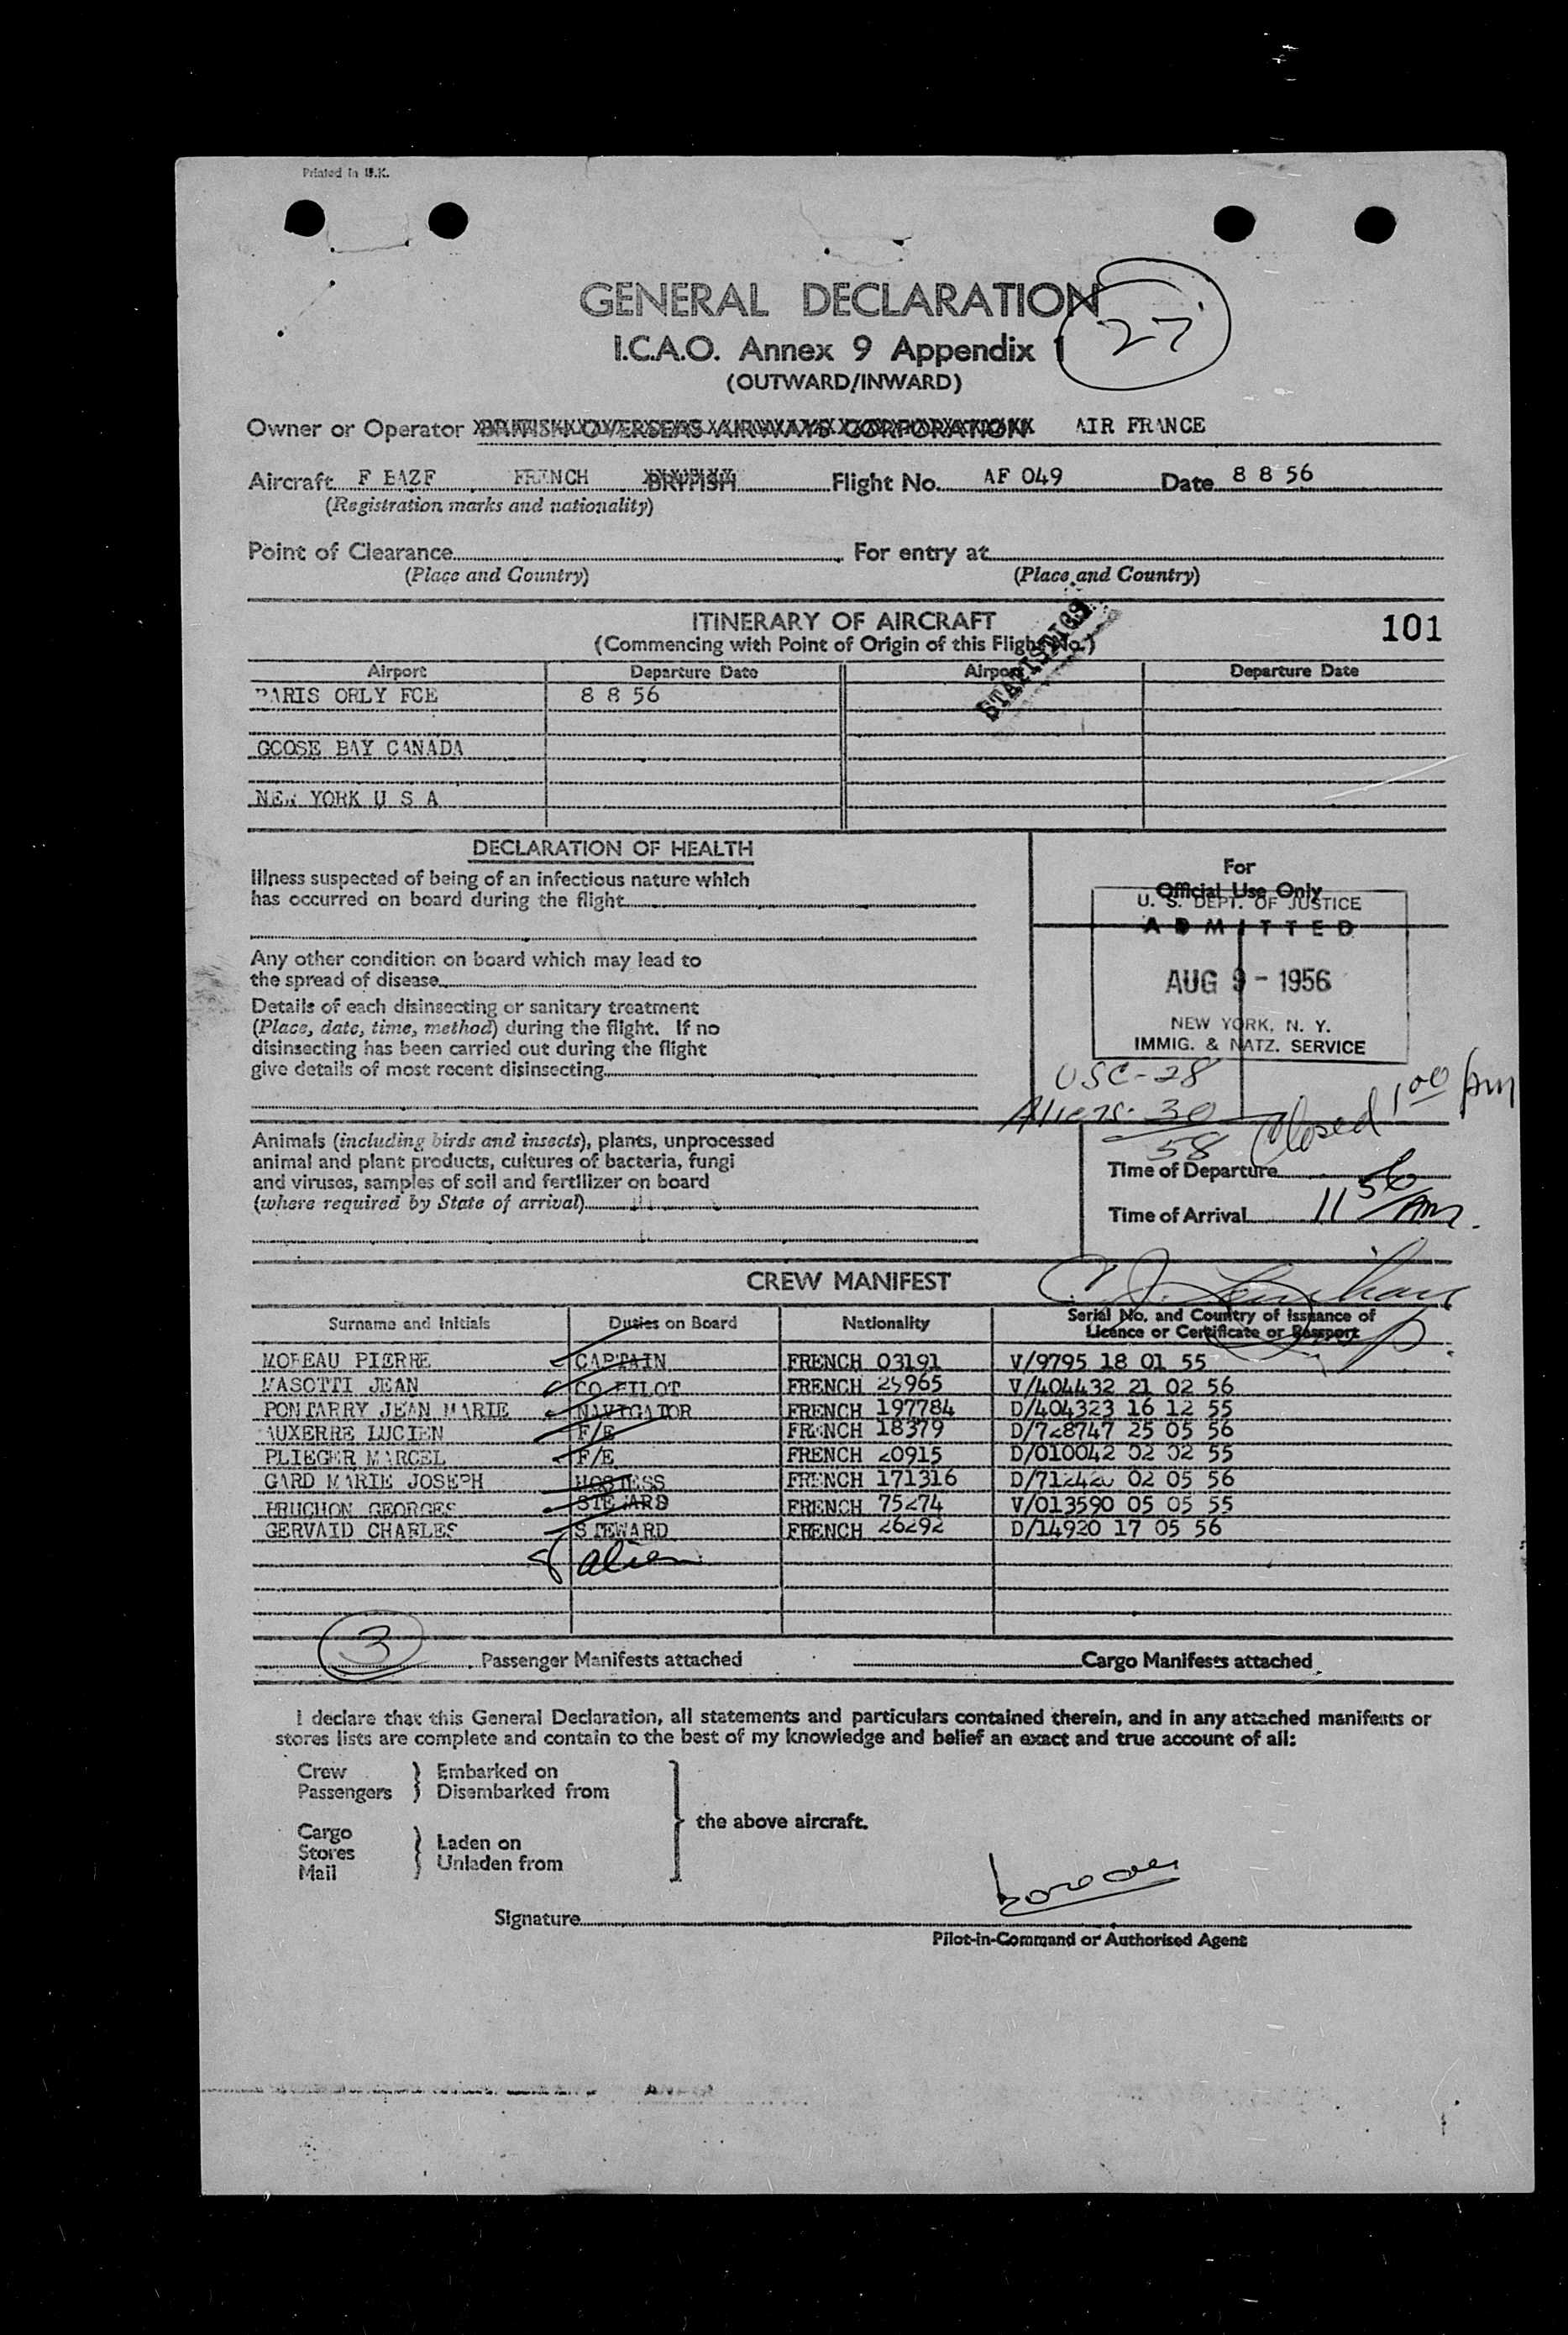 Printed in U.K.
GENERAL DECLARATION
27
I.C.A.O. Annex 9 Appendix 1
(OUTWARD/INWARD)
Owner or Operator BRITISH OVERSEAS AIRWAYS CORPORATION AIR FRANCE
Aircraft F BAZF FRENCH BRITISH Flight No. AF 049 Date 8 8 56
(Registration marks and nationality)
Point of Clearance For entry at
(Place and Country) (Place and Country)
ITINERARY OF AIRCRAFT
101
(Commencing with Point of Origin of this Flight No.)
STATISTICS
Airport Departure Date Airport Departure Date
PARIS ORLY FCE 8 8 56
GOOSE BAY CANADA
NEW YORK U S A
DECLARATION OF HEALTH
Illness suspected of being of an infectious nature which
has occurred on board during the flight
Any other condition on board which may lead to
the spread of disease
Details of each disinsecting or sanitary treatment
(Place, date, time, method) during the flight. If no
disinsecting has been carried out during the flight
give details of most recent disinsecting
For
Official Use Only
U. S. DEPT. OF JUSTICE
ADMITTED
AUG 9 - 1956
NEW YORK, N. Y.
IMMIG. & NATZ. SERVICE
USC-28
Aliens-30
58
Closed 1 00 AM
Animals (including birds and insects), plants, unprocessed
animal and plant products, cultures of bacteria, fungi
and viruses, samples of soil and fertilizer on board
(where required by State of arrival)
Time of Departure
Time of Arrival 11 56 AM
CREW MANIFEST
Surname and Initials Duties on Board Nationality Serial No. and Country of Issuance of
Licence or Certificate or Passport
MOREAU PIERRE CAPTAIN FRENCH 03191 V/9795 18 01 55
MASOTTI JEAN CO PILOT FRENCH 25965 V/404432 21 02 56
PONTARRY JEAN MARIE NAVIGATOR FRENCH 197784 D/404323 16 12 55
AUXERRE LUCIEN F/E FRENCH 18379 D/728747 25 05 56
PLIEGER MARCEL F/E FRENCH 20915 D/010042 02 02 55
GARD MARIE JOSEPH HOSTESS FRENCH 171316 D/712420 02 05 56
GEORGES STEWARD FRENCH 75274 V/013590 05 05 55
GERVAID CHARLES STEWARD FRENCH 26292 D/14920 17 05 56
8 alien
3 Passenger Manifests attached Cargo Manifests attached
I declare that this General Declaration, all statements and particulars contained therein, and in any attached manifests or
stores lists are complete and contain to the best of my knowledge and belief an exact and true account of all:
Crew } Embarked on
Passengers } Disembarked from
the above aircraft.
Cargo
Stores } Laden on
Mail } Unladen from
Signature
Pilot-in-Command or Authorised Agent